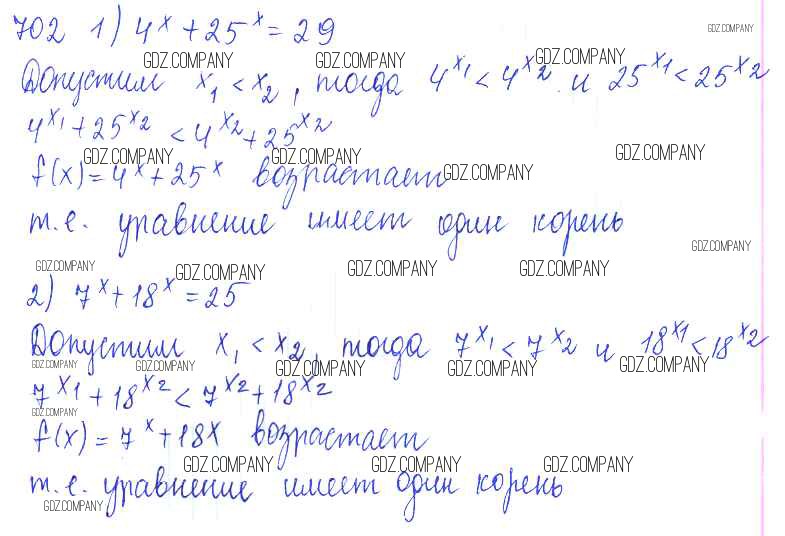 702 1) 4^x + 25^x = 29
GDZ.COMPANY
GDZ.COMPANY GDZ.COMPANY GDZ.COMPANY
Допустим x₁ < x₂, тогда 4^x₁ < 4^x₂ и 25^x₁ < 25^x₂
4^x₁ + 25^x₂ < 4^x₂ + 25^x₂
GDZ.COMPANY GDZ.COMPANY GDZ.COMPANY
f(x) = 4^x + 25^x возрастает GDZ.COMPANY
т.е. уравнение имеет один корень
GDZ.COMPANY
GDZ.COMPANY GDZ.COMPANY GDZ.COMPANY GDZ.COMPANY
2) 7^x + 18^x = 25
Допустим x₁ < x₂, тогда 7^x₁ < 7^x₂ и 18^x₁ < 18^x₂
GDZ.COMPANY GDZ.COMPANY GDZ.COMPANY GDZ.COMPANY GDZ.COMPANY
7^x₁ + 18^x₂ < 7^x₂ + 18^x₂
GDZ.COMPANY
f(x) = 7^x + 18x возрастает
GDZ.COMPANY GDZ.COMPANY GDZ.COMPANY
т.е. уравнение имеет один корень
GDZ.COMPANY